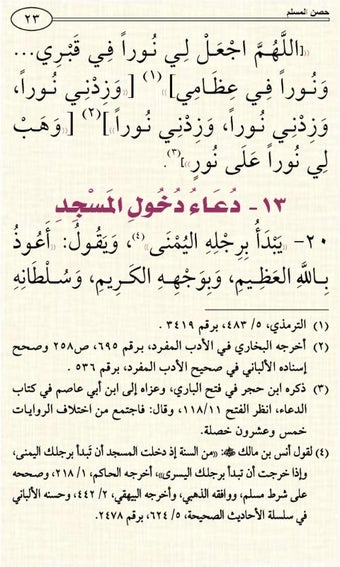 حصن المسلم
٢٣
((][اللَّهُمَّ اجْعَلْ لِي نُوراً فِي قَبْرِي...
وَنُوراً فِي عِظَامِي] (١) [((وَزِدْنِي نُوراً،
وَزِدْنِي نُوراً، وَزِدْنِي نُوراً))] (٢) [((وَهَبْ
لِي نُوراً عَلَى نُورٍ))](٣).
١٣- دُعَاءُ دُخُولِ المَسْجِدِ
٢٠- ((يَبْدَأُ بِرِجْلِهِ اليُمْنَى))(٤)، وَيَقُولُ: ((أَعُوذُ
بِاللَّهِ العَظِيمِ، وَبِوَجْهِهِ الكَرِيمِ، وَسُلْطَانِهِ
(١) الترمذي، ٥/ ٤٨٣، برقم ٣٤١٩ .
(٢) أخرجه البخاري في الأدب المفرد، برقم ٦٩٥، ص٢٥٨ وصحح
إسناده الألباني في صحيح الأدب المفرد، برقم ٥٣٦ .
(٣) ذكره ابن حجر في فتح الباري، وعزاه إلى ابن أبي عاصم في كتاب
الدعاء، انظر الفتح ١١/ ١١٨، وقال: فاجتمع من اختلاف الروايات
خمس وعشرون خصلة.
(٤) لقول أنس بن مالك ﷺ: ((من السنة إذ دخلت المسجد أن تَبدأ برجلك اليمنى،
وإذا خرجت أن تبدأ برجلك اليسرى))، أخرجه الحاكم، ١/ ٢١٨، وصححه
على شرط مسلم، ووافقه الذهبي، وأخرجه البيهقي، ٢/ ٤٤٢، وحسنه الألباني
في سلسلة الأحاديث الصحيحة، ٥/ ٦٢٤، برقم ٢٤٧٨.